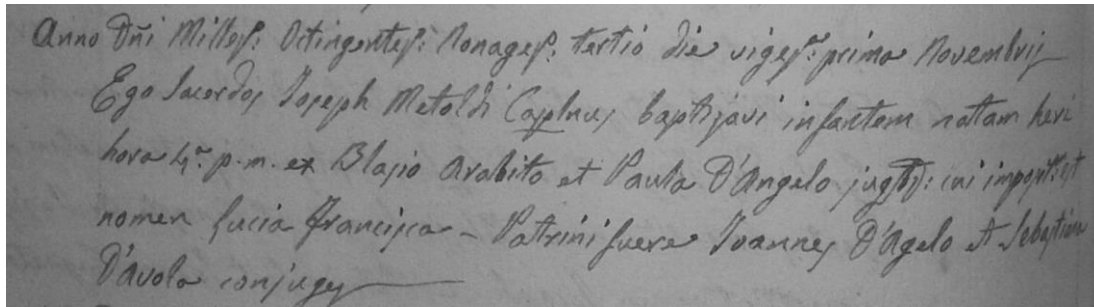 Anno Dñi Milles: Octingentes: Nonages: tertio die viges:ᵃ prima Novembris
Ego Sacerdos Joseph Metoldi Caplnus baptizavi infantem natam heri
hora 4:ᵃ p.m. ex Blasio Arabito et Paula D'Angelo jugbs: cui impost: est
nomen Lucia Francisca – Patrini fuere Joannes D'Agelo et Sebastiana
D'Avola conjuges